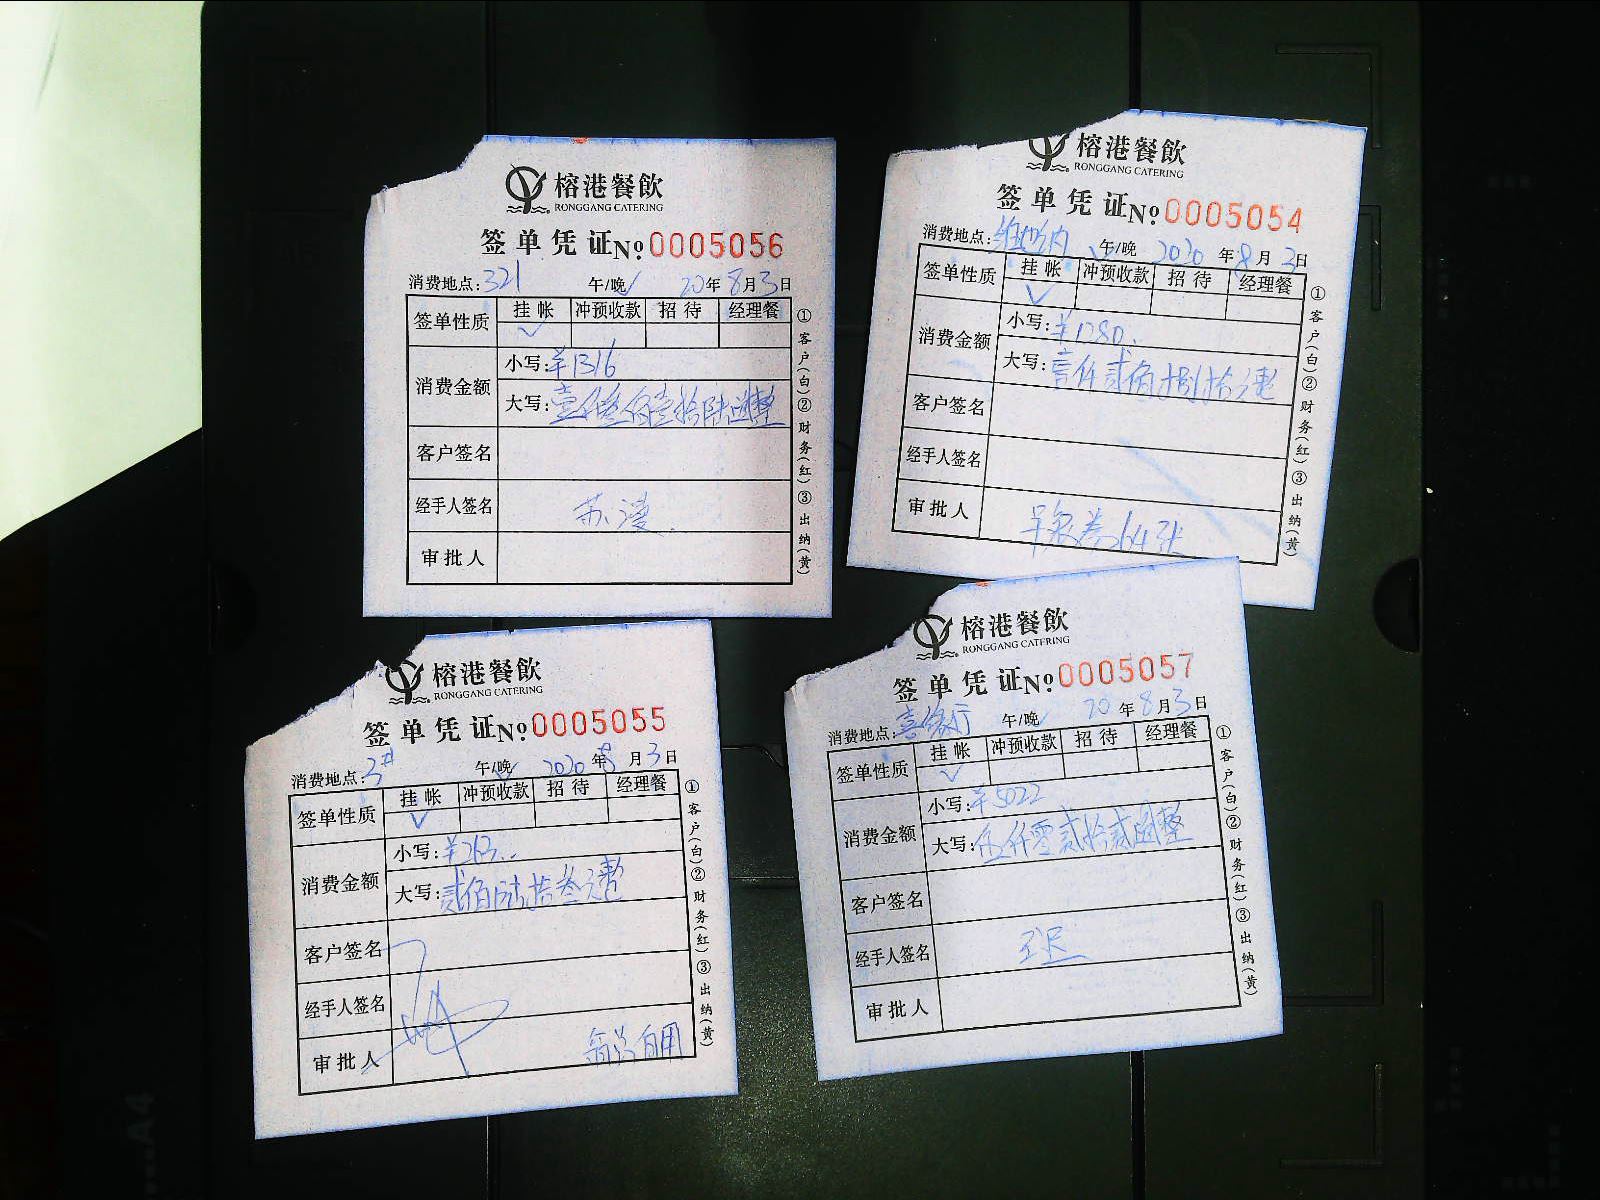 榕港餐飲
RONGGANG CATERING
签单凭证 No 0005056
消费地点:321 午/晚✓ 20年8月3日
签单性质 挂帐 冲预收款 招待 经理餐
✓
消费金额 小写:¥1316
大写:壹仟叁佰壹拾陆圆整
客户签名
经手人签名 苏凌
审批人
①客户(白)②财务(红)③出纳(黄)
榕港餐飲
RONGGANG CATERING
签单凭证 No 0005054
消费地点:维也纳 午/晚 2020年8月3日
签单性质 挂帐 冲预收款 招待 经理餐
✓
消费金额 小写:¥1280.
大写:壹仟贰佰捌拾元整
客户签名
经手人签名
审批人 早餐券64张
①客户(白)②财务(红)③出纳(黄)
榕港餐飲
RONGGANG CATERING
签单凭证 No 0005055
消费地点:3# 午/晚✓ 2020年8月3日
签单性质 挂帐 冲预收款 招待 经理餐
✓
消费金额 小写:¥263..
大写:贰佰陆拾叁元整
客户签名
经手人签名
审批人 自用
①客户(白)②财务(红)③出纳(黄)
榕港餐飲
RONGGANG CATERING
签单凭证 No 0005057
消费地点:喜缘厅 午/晚✓ 20年8月3日
签单性质 挂帐 冲预收款 招待 经理餐
✓
消费金额 小写:¥5022
大写:伍仟零贰拾贰圆整
客户签名
经手人签名
审批人
①客户(白)②财务(红)③出纳(黄)
A4